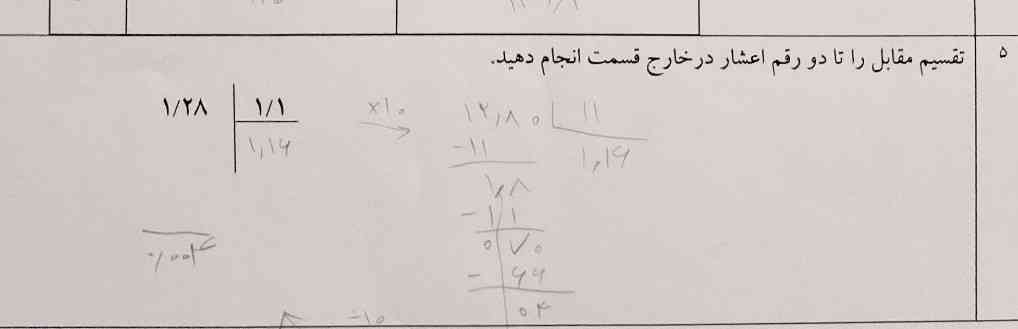 ۵
تقسیم مقابل را تا دو رقم اعشار در خارج قسمت انجام دهید.
۱/۲۸ ۱/۱ ×۱۰ ۱۲,۸۰ ۱۱
۱,۱۶ -۱۱ ۱,۱۶
۱,۸
-۱۱
۰۷۰
۰/۰۰۴ - ۶۶
۰۴
÷۱۰